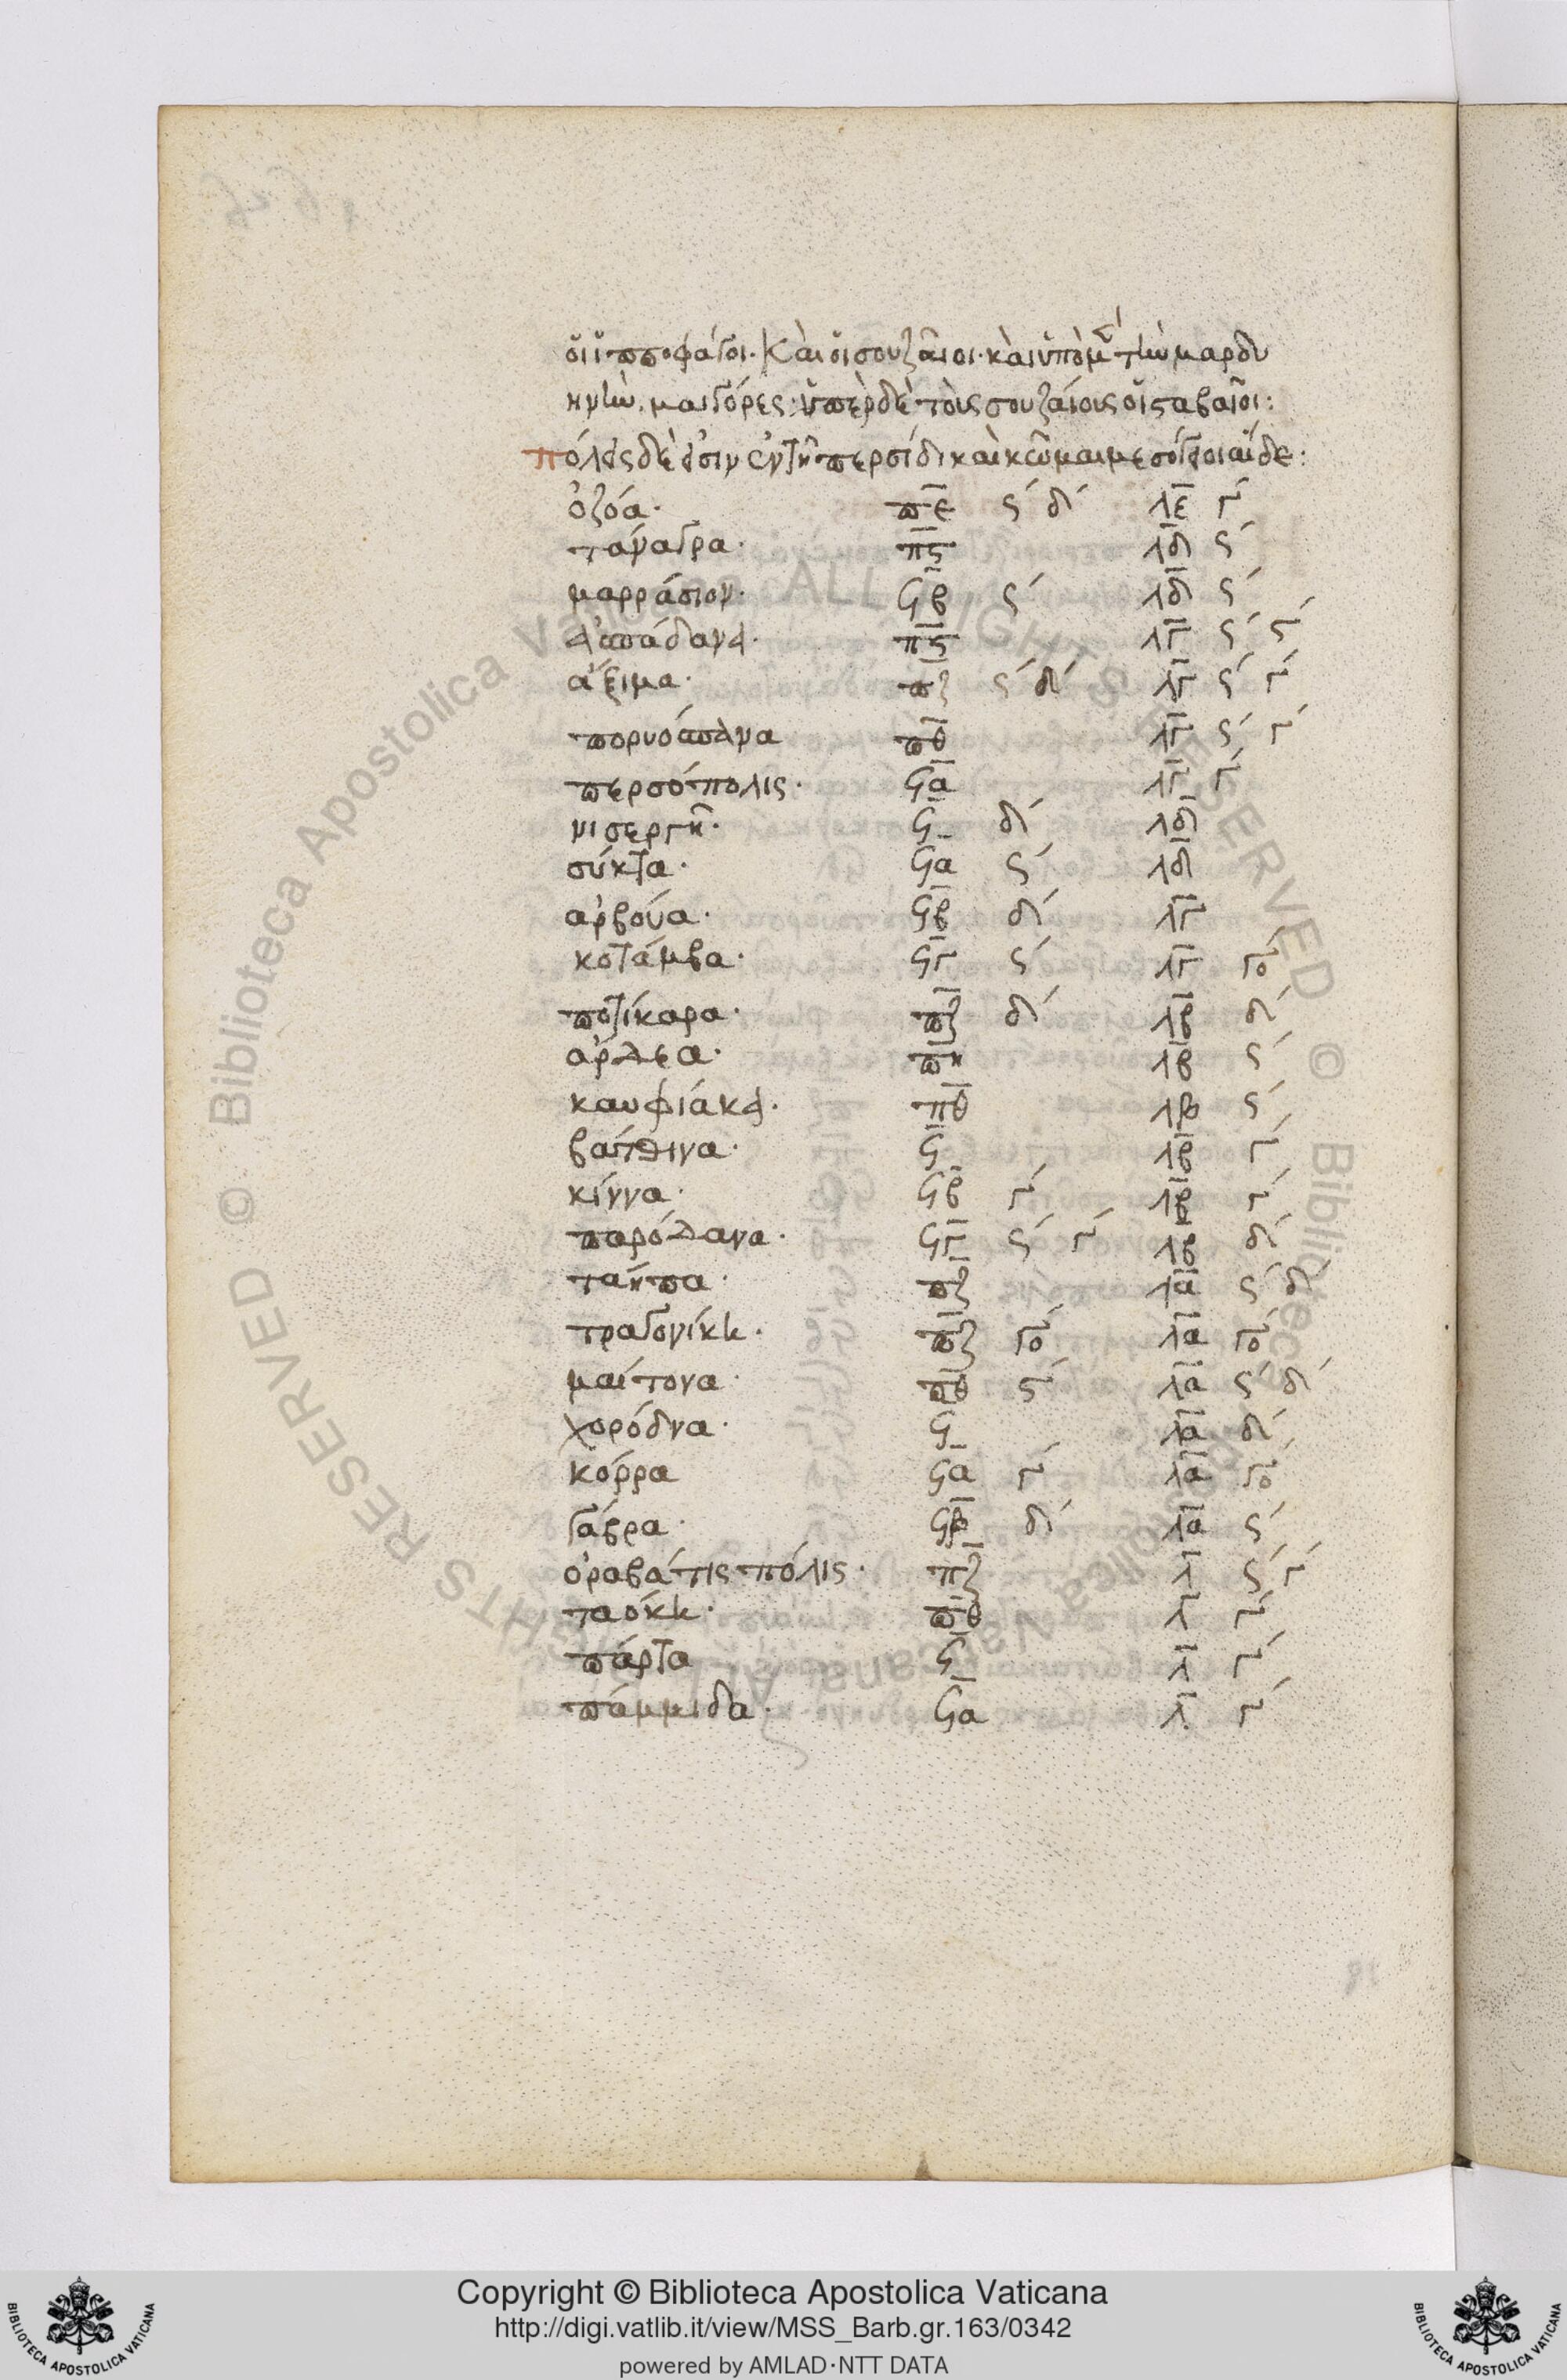 οἱ ἱπποφάγοι· καὶ οἱ σουζαῖοι· καὶ ὑπὸ μ(ὲν) τὴν μαρδυ
ηνὴν, μαιγόρες· ὑπὲρ δὲ τοὺς σουζαίους οἱ σταβαῖοι:
πόλεις δέ εἰσιν ἐν τῆ περσίδι καὶ κῶμαι μεσόγειοι αἵδε:
ὀζόα· π̅ε̅ ϛ´ δ´ λ̅ε̅ γ´
τάναγρα· π̅ϛ̅ λ̅δ̅ ϛ´
μαρράσιον· ϟ̅β̅ ϛ´ λ̅δ̅ ϛ´
ἀπάδανα· π̅ϛ̅ λ̅γ̅ ϛ´ ϛ´
ἄξιμα· π̅ζ̅ ϛ´ δ´ λ̅γ̅ ϛ´ γ´
πορυόαπανα π̅θ̅ λ̅γ̅ ϛ´ γ´
περσόπολις· ϟ̅α̅ λ̅γ̅ γ´
νισεργῆ· ϟ̅ δ´ λ̅δ̅
σύκτα· ϟ̅α̅ ϛ´ λ̅δ̅
ἀρβούα· ϟ̅β̅ δ´ λ̅γ̅
κοτάμβα· ϟ̅γ̅ ϛ´ λ̅γ̅ γο´
ποτίκαρα· π̅ζ̅ δ´ λ̅β̅ δ´
ἀρδέα· π̅η̅ λ̅β̅ ϛ´
καυφιάκα· π̅θ̅ λ̅β̅ ϛ´
βάτθινα· ϟ̅ λ̅β̅ γ´
κίννα· ϟ̅β̅ γ´ λ̅β̅ γ´
παρόδανα· ϟ̅γ̅ ϛ´ γ´ λ̅β̅ δ´
ταήπα· π̅ζ̅ λ̅α̅ ϛ´ δ´
τραγονίκη· π̅ζ̅ γο´ λ̅α̅ γο´
μαίτονα· π̅θ̅ ϛ´ λ̅α̅ ϛ´ δ´
χορόδνα· ϟ̅ λ̅α̅ δ´
κόρρα ϟ̅α̅ γ´ λ̅α̅ γο´
γάβρα· ϟ̅β̅ δ´ λ̅α̅ ϛ´
ὀραβάτις πόλις· π̅ζ̅ λ̅ ϛ´ γ´
ταόκη· π̅θ̅ λ̅ γ´
πάρτα ϟ̅ λ̅ γ´
πάμμιδα· ϟ̅α̅ λ̅ γ´
Copyright © Biblioteca Apostolica Vaticana
http://digi.vatlib.it/view/MSS_Barb.gr.163/0342
powered by AMLAD·NTT DATA